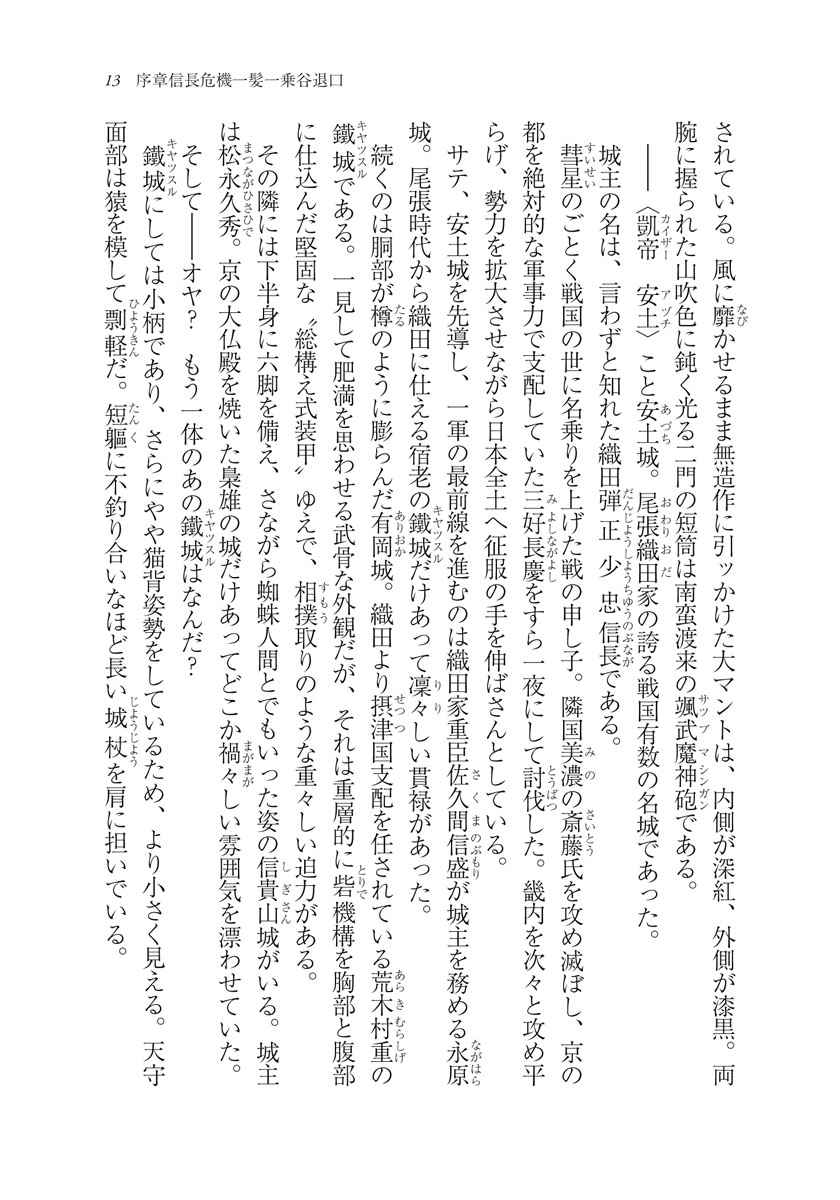 13　序章信長危機一髪一乗谷退口
されている。風に靡かせるまま無造作に引ッかけた大マントは、内側が深紅、外側が漆黒。両
腕に握られた山吹色に鈍く光る二門の短筒は南蛮渡来の颯武魔神砲である。
――〈凱帝　安土〉こと安土城。尾張織田家の誇る戦国有数の名城であった。
城主の名は、言わずと知れた織田弾正少忠信長である。
彗星のごとく戦国の世に名乗りを上げた戦の申し子。隣国美濃の斎藤氏を攻め滅ぼし、京の
都を絶対的な軍事力で支配していた三好長慶をすら一夜にして討伐した。畿内を次々と攻め平
らげ、勢力を拡大させながら日本全土へ征服の手を伸ばさんとしている。
サテ、安土城を先導し、一軍の最前線を進むのは織田家重臣佐久間信盛が城主を務める永原
城。尾張時代から織田に仕える宿老の鐵城だけあって凜々しい貫禄があった。
続くのは胴部が樽のように膨らんだ有岡城。織田より摂津国支配を任されている荒木村重の
鐵城である。一見して肥満を思わせる武骨な外観だが、それは重層的に砦機構を胸部と腹部
に仕込んだ堅固な〝総構え式装甲〟ゆえで、相撲取りのような重々しい迫力がある。
その隣には下半身に六脚を備え、さながら蜘蛛人間とでもいった姿の信貴山城がいる。城主
は松永久秀。京の大仏殿を焼いた梟雄の城だけあってどこか禍々しい雰囲気を漂わせていた。
そして――オヤ？　もう一体のあの鐵城はなんだ？
鐵城にしては小柄であり、さらにやや猫背姿勢をしているため、より小さく見える。天守
面部は猿を模して剽軽だ。短軀に不釣り合いなほど長い城杖を肩に担いでいる。